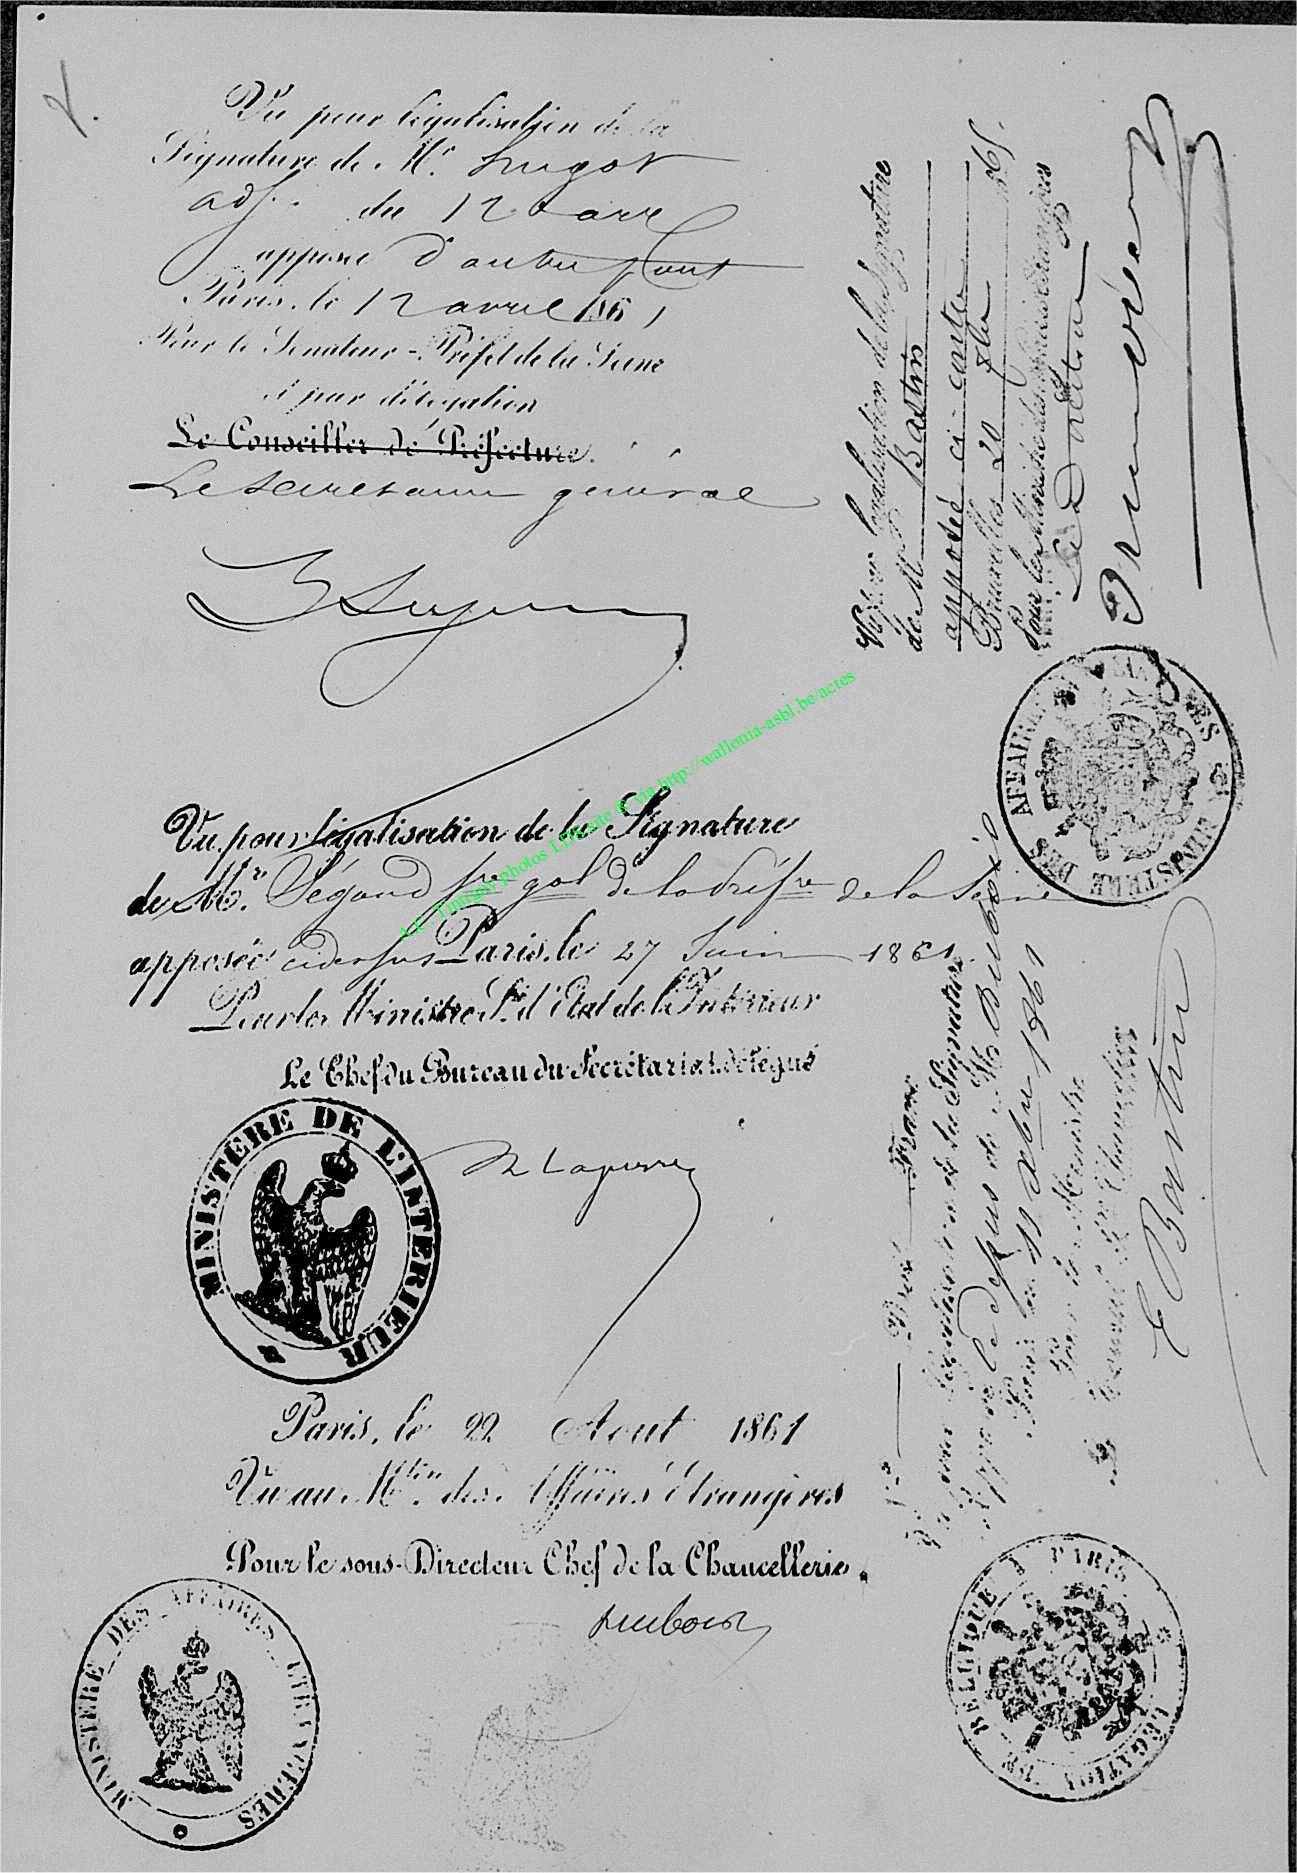 Vu pour légalisation de la
Signature de Mr. Hugot
adj. du 12e arr
apposé d'autre part
Paris, le 12 avril 1861
Pour le Sénateur-Préfet de la Seine
et par délégation
Le Conseiller de Préfecture.
Le secrétaire général
Vu pour légalisation de la Signature
de Mr. Ségaud sre gal de la Préfre de la Seine
apposée ci dessus Paris, le 27 Juin 1861.
Pour le Ministre Sre d'Etat de l'Intérieur
Le Chef du Bureau du Secrétariat délégué
MINISTÈRE DE L'INTERIEUR
Paris, le 22 Aout 1861
Vu au Mtère des Affaires étrangères
Pour le sous-Directeur Chef de la Chancellerie
Dubois
MINISTÈRE DES AFFAIRES ETRANGÈRES
Vu pour légalisation de la Signature
de Mr Bastin
apposée ci-contre
Bruxelles 20
Pour le Ministre des Affaires étrangères
Le Directeur
MINISTÈRE DES AFFAIRES ETRANGÈRES
Vu pour légalisation de la Signature
apposée ci-dessus de Mr Dubois
Paris le 11 xbre 1861
Pour le Ministre
E Bastin
LÉGATION DE BELGIQUE A PARIS
A.C. Tintigny photos LDS site © via http://wallonia-asbl.be/actes